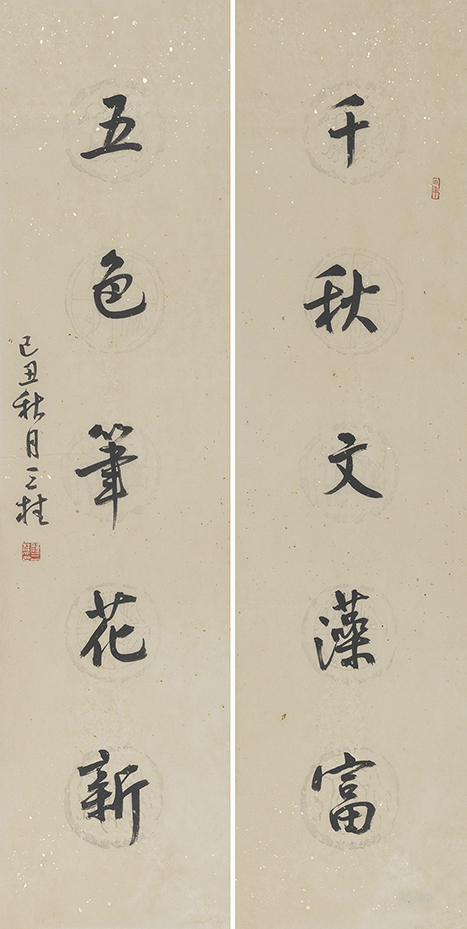 千秋文藻富
五色筆花新
己丑秋月三柱